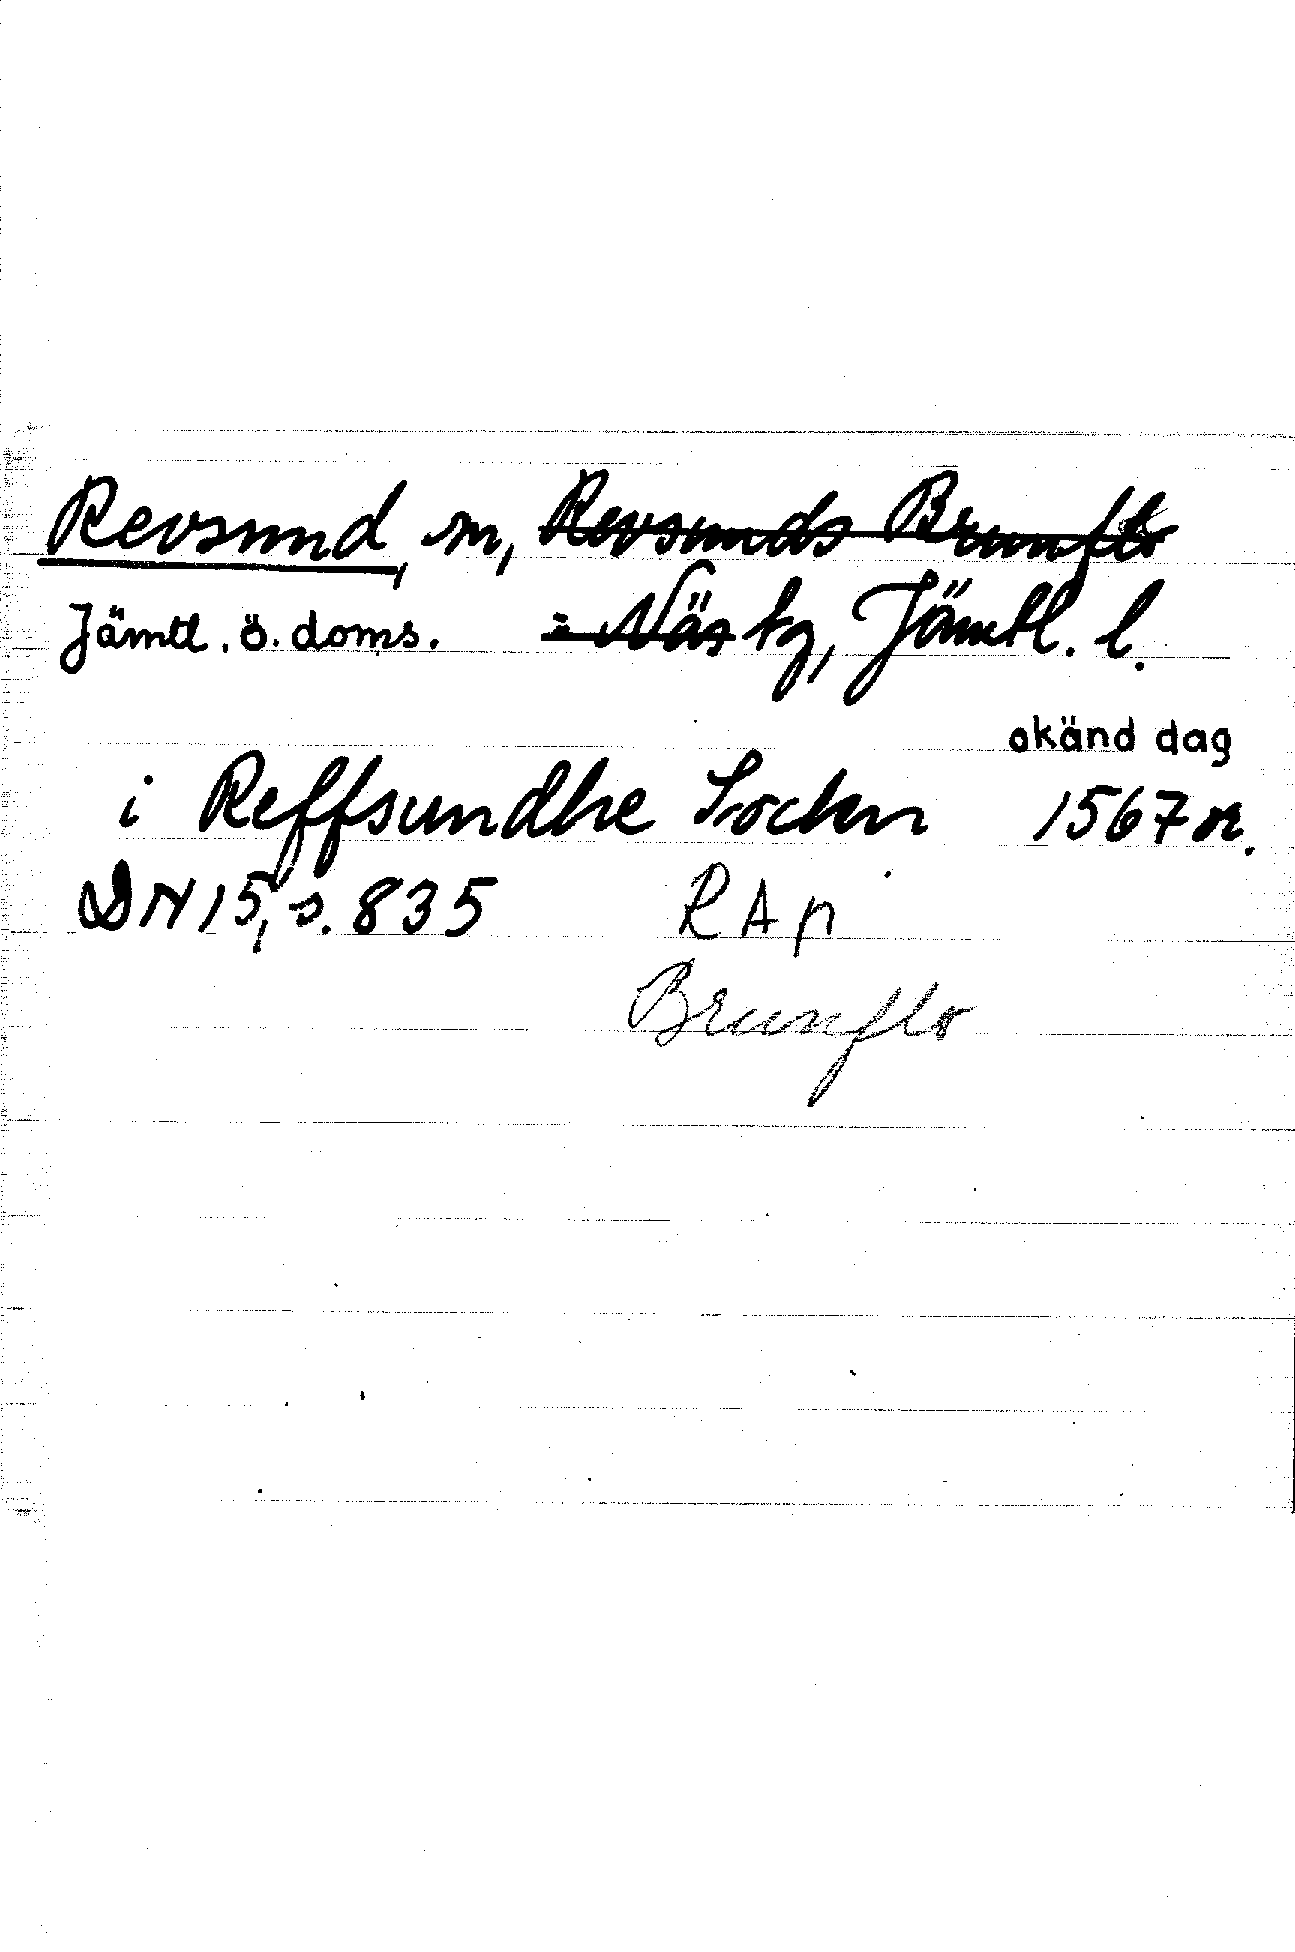 Revsund, sn, Revsunds Brunflo
Jämtl. ö. doms. = Näs tg, Jämtl. l.
okänd dag
i Reffsundhe Sockn 1567 or.
DN 15, s. 835 RAp
Brunflo